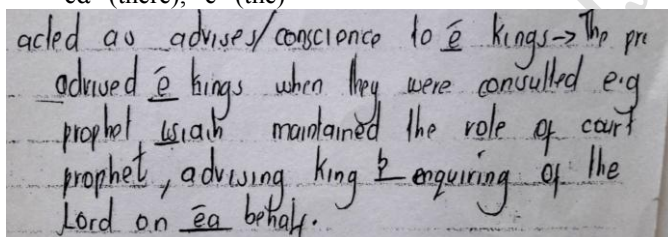 ea (there), e (the)
acted as advises/conscience to ē kings → The pr
advised ē kings when they were consulted e.g
prophet maintained the role of court
prophet, advising King & enquiring of the
Lord on ēa behalf.